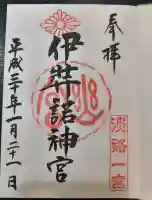 奉拝
淡路一宮
伊弉諾神宮
平成三十年一月二十一日